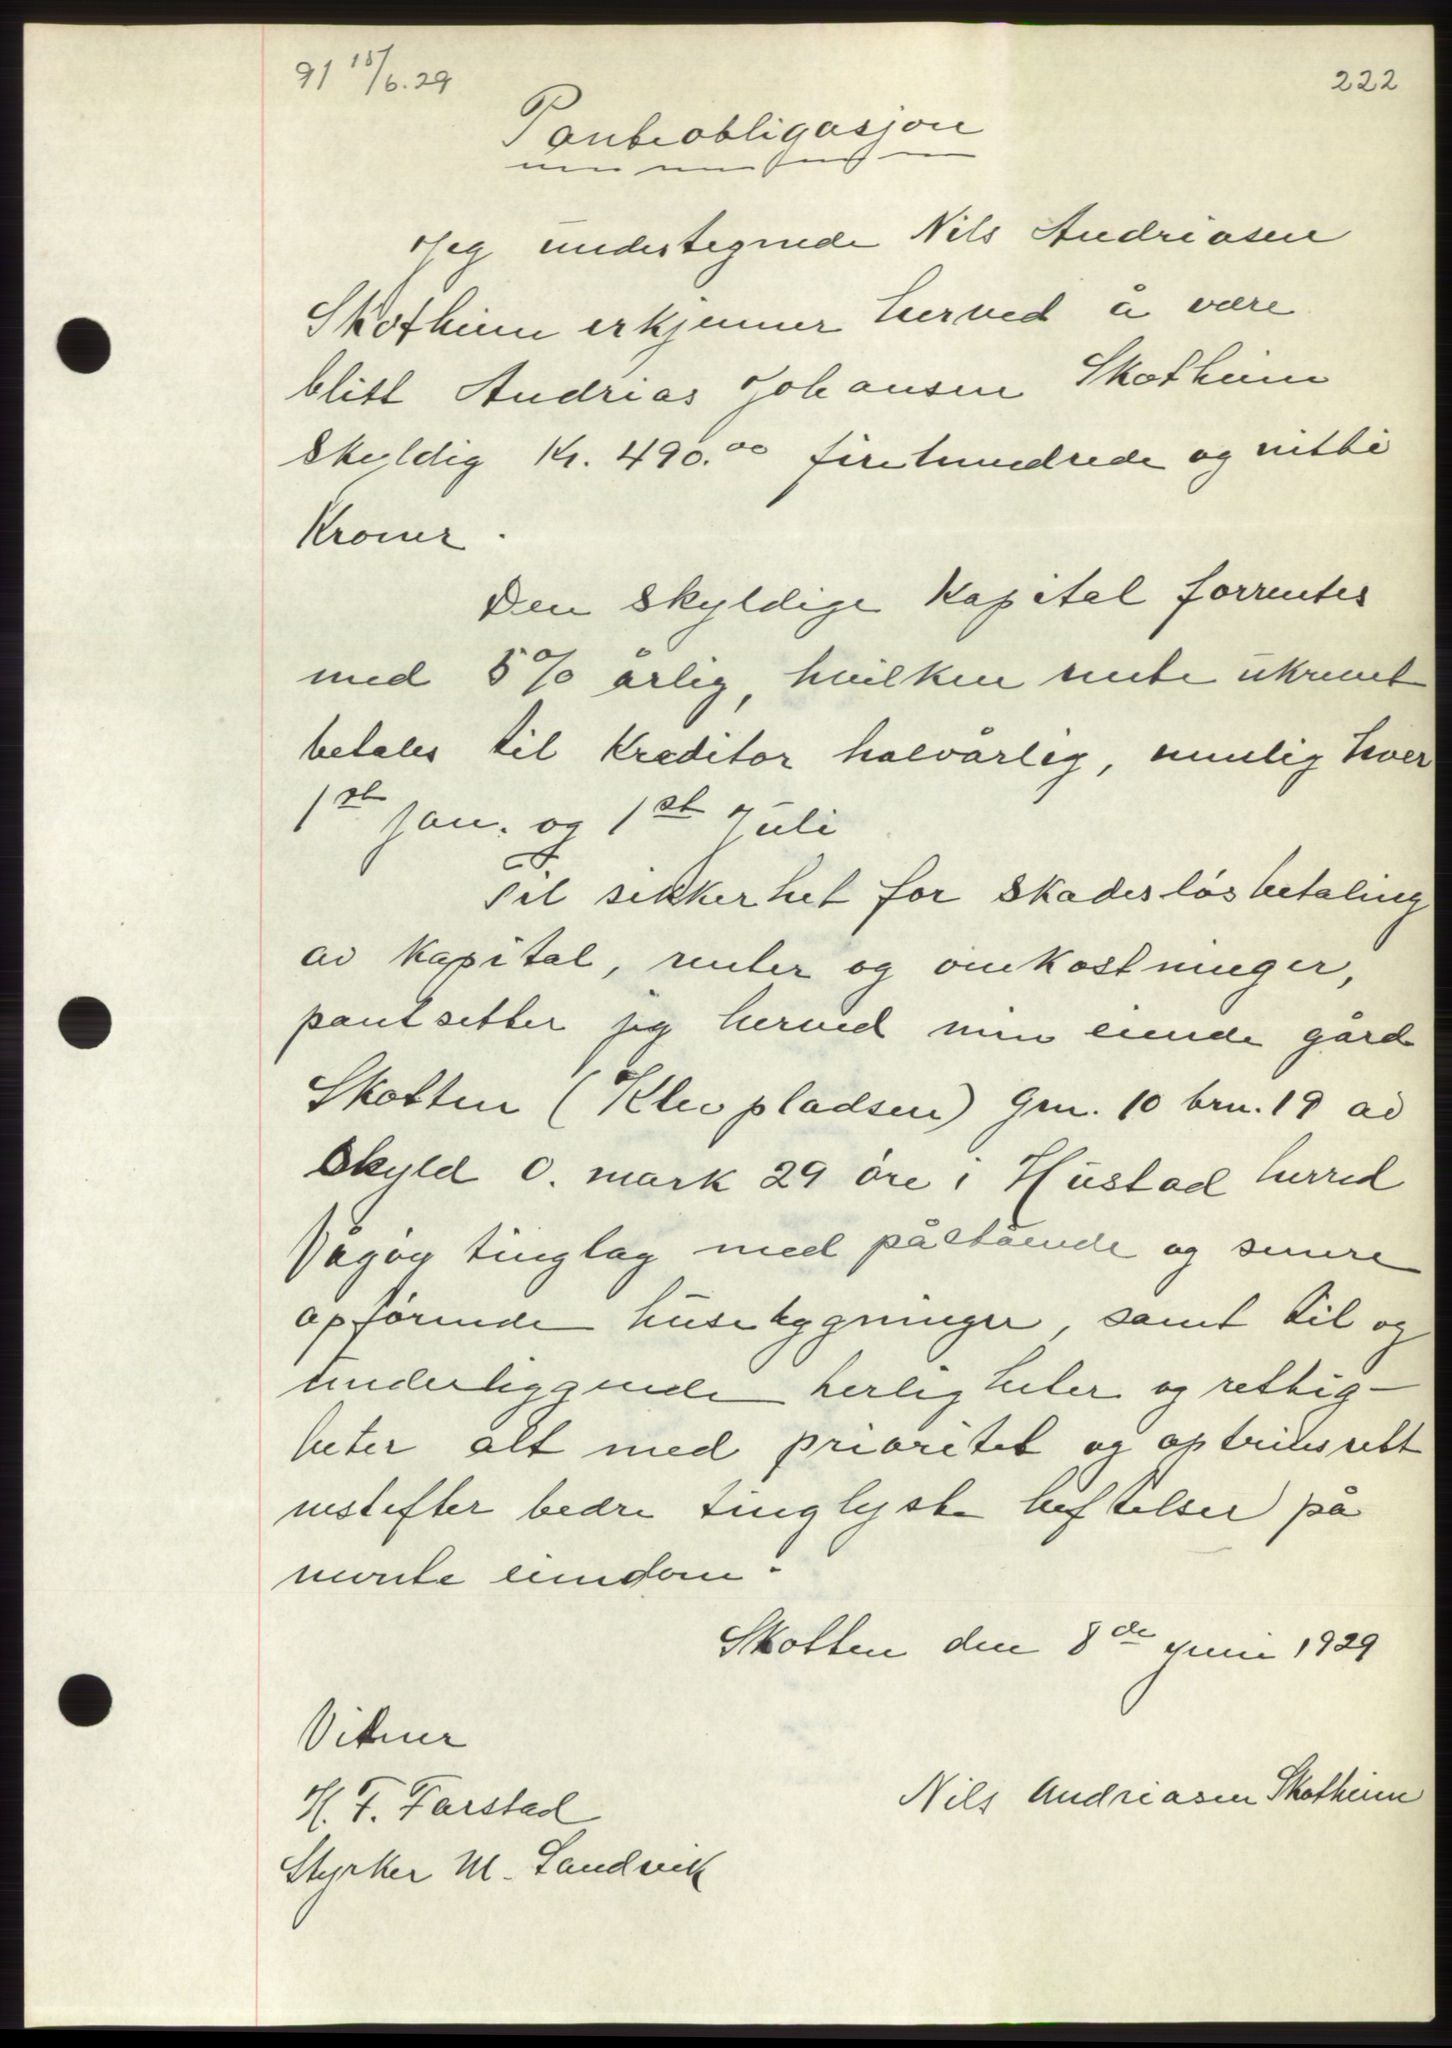 91 15/6.29
222
Panteobligasjon
Jeg undertegnede Nils Andriasen
Skotheim erkjenner herved å være
blitt Andrias Johansen Skotheim
skyldig Kr. 490.00 firehundrede og nitti
Kroner.
Den skyldige Kapital forrentes
med 5% årlig, hvilken rente ukrevet
betales til Kreditor halvårlig, nemlig hver
1st jan. og 1st Juli
Til sikkerhet for skadesløs betaling
av Kapital, renter og omkostninger,
pantsetter jeg herved min eiende gård
Skotten (Klevpladsen) Grn. 10 brn. 19 av
skyld 0. mark 29 øre i Hustad herred
Vågøy tinglag med påstående og senere
opførende husebygninger, samt til og
underliggende herligheter og rettig-
heter alt med prioritet og optrinsrett
nestefter bedre tinglyste heftelser på
nevnte eiendom.
Skotten den 8de juni 1929
Vitner
H. F. Farstad
Nils Andriasen Skotheim
Styrker M. Sandvik